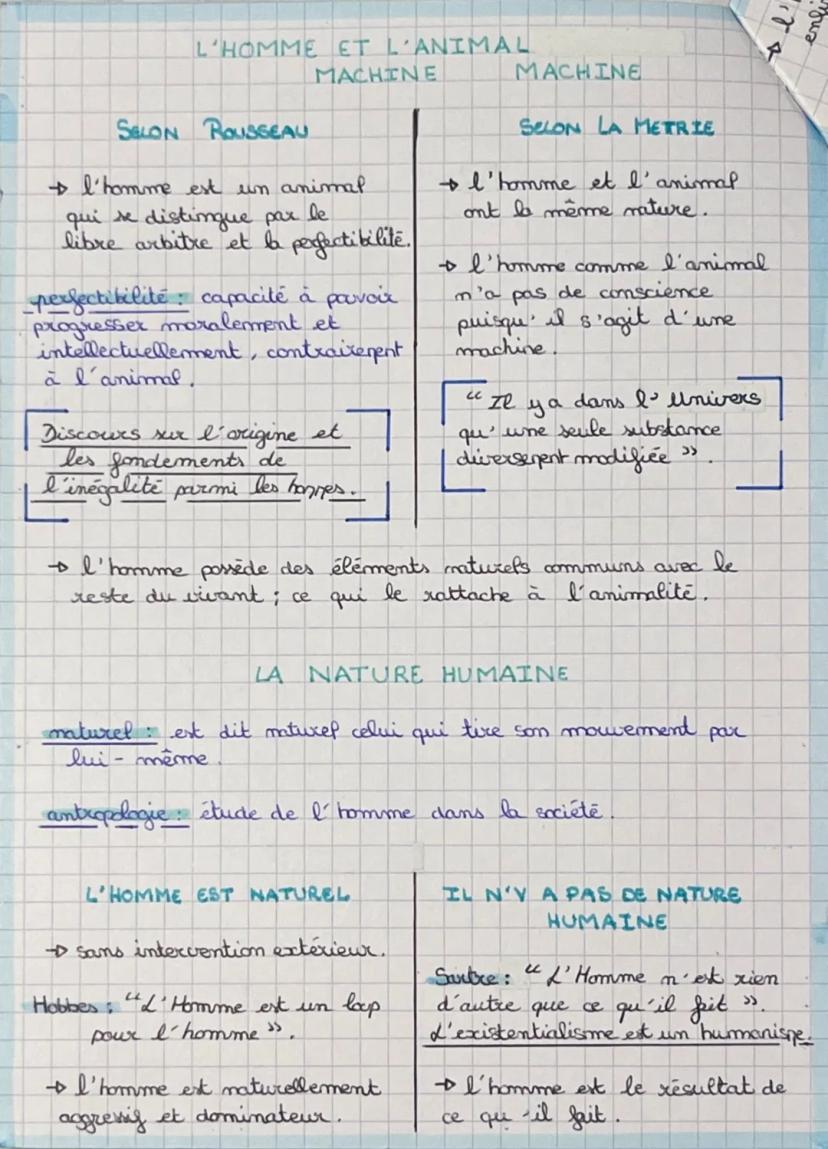 L'HOMME ET L'ANIMAL
MACHINE MACHINE
SELON ROUSSEAU
→ l'homme est un animal
qui se distingue par le
libre arbitre et la perfectibilité.
perfectibilité : capacité à pouvoir
progresser moralement et
intellectuellement, contrairement
à l'animal.
Discours sur l'origine et
les fondements de
l'inégalité parmi les hommes.
SELON LA METRIE
→ l'homme et l'animal
ont la même nature.
→ l'homme comme l'animal
n'a pas de conscience
puisqu'il s'agit d'une
machine.
“ Il y a dans l'Univers
qu'une seule substance
diversement modifiée ”.
→ l'homme possède des éléments naturels communs avec le
reste du vivant ; ce qui le rattache à l'animalité.
LA NATURE HUMAINE
naturel : est dit naturel celui qui tire son mouvement par
lui-même.
antropologie : étude de l'homme dans la société.
L'HOMME EST NATUREL
→ sans intervention extérieure.
Hobbes : “L'Homme est un loup
pour l'homme ”.
→ l'homme est naturellement
aggressif et dominateur.
IL N'Y A PAS DE NATURE
HUMAINE
Sartre : “ L'Homme n'est rien
d'autre que ce qu'il fait ”.
L'existentialisme est un humanisme.
→ l'homme est le résultat de
ce qu'il fait.